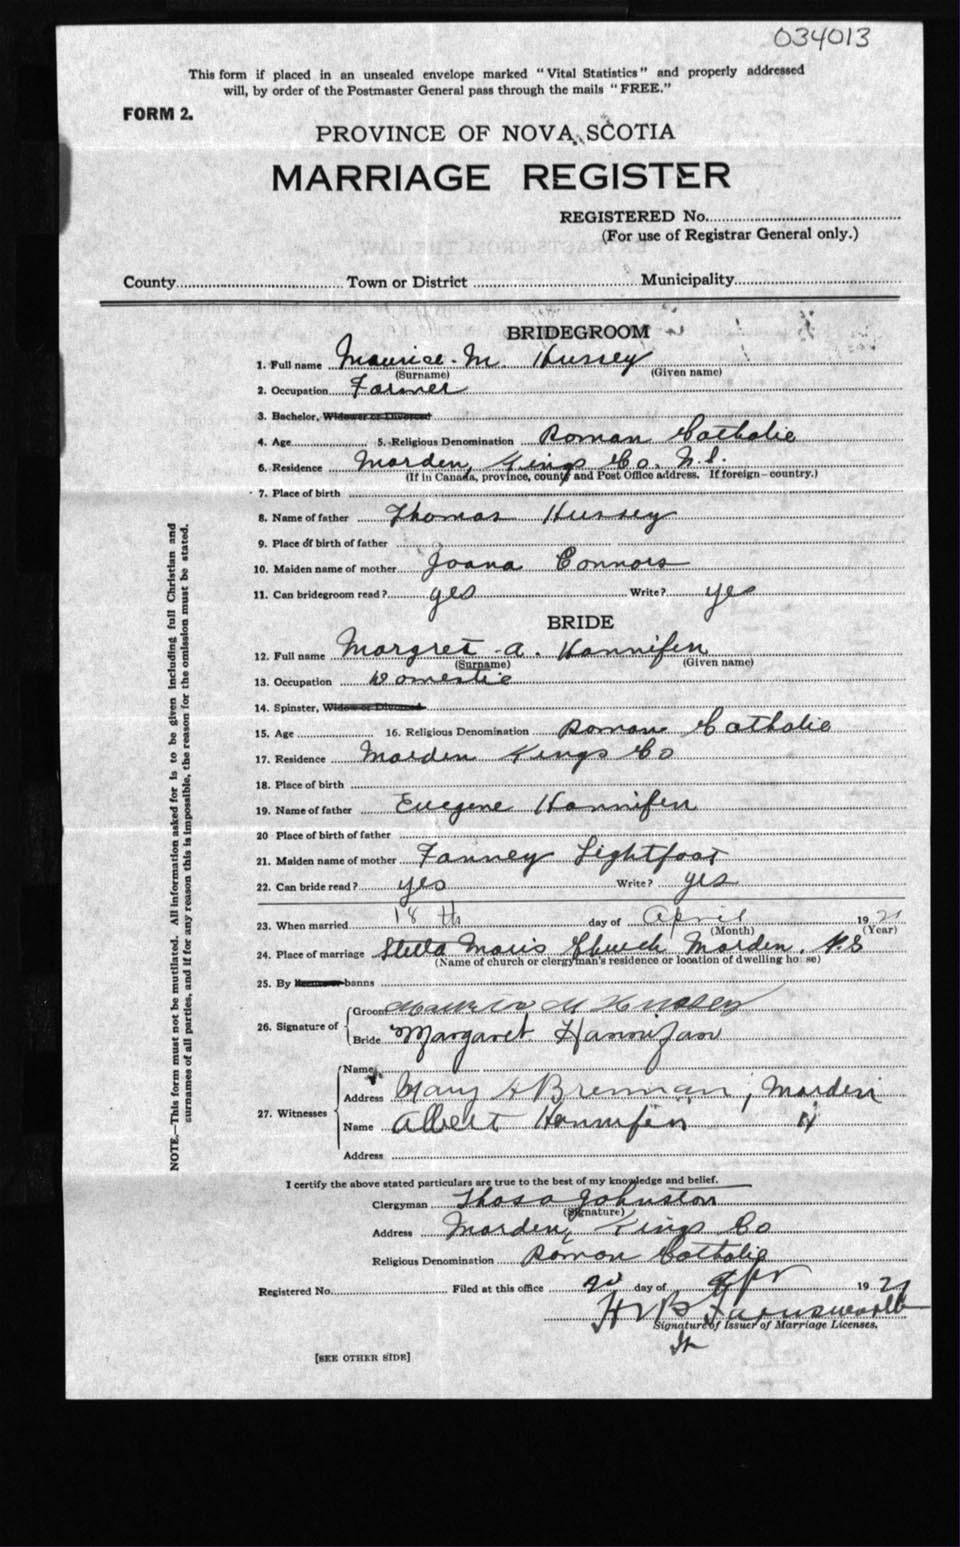 034013
This form if placed in an unsealed envelope marked "Vital Statistics" and properly addressed
will, by order of the Postmaster General pass through the mails "FREE."
FORM 2.
PROVINCE OF NOVA SCOTIA
MARRIAGE REGISTER
REGISTERED No.
(For use of Registrar General only.)
County Town or District Municipality
BRIDEGROOM
1. Full name Maurice - M. Hussey
(Surname) (Given name)
2. Occupation Farmer
3. Bachelor, Widower or Divorced
4. Age 5. Religious Denomination Roman Catholic
6. Residence Morden, Kings Co. N.S.
(If in Canada, province, county and Post Office address. If foreign—country.)
7. Place of birth
8. Name of father Thomas Hussey
9. Place of birth of father
10. Maiden name of mother Joana Connors
11. Can bridegroom read? yes Write? yes
BRIDE
12. Full name Margret - a. Hannifen
(Surname) (Given name)
13. Occupation Domestic
14. Spinster, Widow or Divorced
15. Age 16. Religious Denomination Roman Catholic
17. Residence Morden Kings Co
18. Place of birth
19. Name of father Euegene Hannifen
20 Place of birth of father
21. Maiden name of mother Fanney Lightfoot
22. Can bride read? yes Write? yes
23. When married 18 th day of April 1921
(Month) (Year)
24. Place of marriage Stella Maris Church Morden. N.S
(Name of church or clergyman's residence or location of dwelling house)
25. By banns
26. Signature of
Groom Maurice M Hussey
Bride Margaret Hannifan
27. Witnesses
Name
Address Mary H Brennan, Morden
Name Albert Hannifen
Address
I certify the above stated particulars are true to the best of my knowledge and belief.
Clergyman Johnston
(Signature)
Address Morden, Kings Co
Religious Denomination Roman Catholic
Registered No. Filed at this office 20 day of Apr 1921
H V B Farnsworth
Signature of Issuer of Marriage Licenses.
[SEE OTHER SIDE]
NOTE.—This form must not be mutilated. All information asked for is to be given including full Christian and
surnames of all parties, and if for any reason this is impossible, the reason for the omission must be stated.